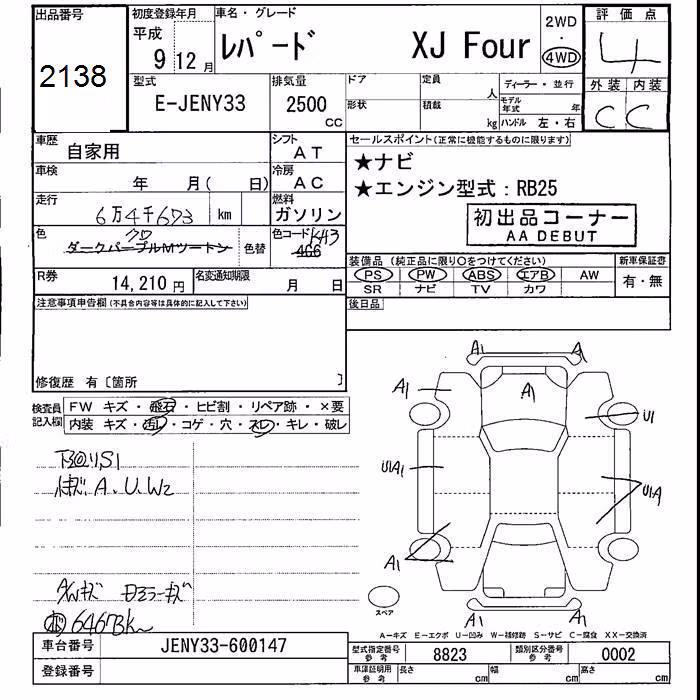 出品番号 初度登録年月 車名・グレード 評価点
2138 平成 9 12月 レパード XJ Four 2WD・4WD 4
外装 内装
C C
型式 排気量 ドア 定員 人 ディーラー・並行
E-JENY33 2500 cc 形状 積載 kg モデル年式 年 ハンドル 左・右
車歴 自家用 シフト AT セールスポイント(正常に機能するものに限ります)
★ナビ
車検 年 月( 日) 冷房 AC
★エンジン型式:RB25
走行 6万4千673 km 燃料 ガソリン
初出品コーナー
AA DEBUT
色 クロ 色替 色コード KH3
ダークパープルMツートン 4G6
装備品(純正品に限り○をつけてください) 新車保証書
PS PW ABS エアB AW 有・無
SR ナビ TV カワ
R券 14,210円 名変通知期限 月 日
後日品
注意事項申告欄(不具合内容等は具体的に記入して下さい)
修復歴 有〔箇所 〕
検査員記入欄 FW キズ・飛石・ヒビ割・リペア跡・×要
内装 キズ・汚レ・コゲ・穴・スレ・キレ・破レ
A1 A1
A1 A1 U1
U1A1 U1A
A1
A1 A1
A、U、W2
A/Wキズ ドアミラーキズ
スペア
A-キズ E-エクボ U-凹み W-補修跡 S-サビ C-腐食 XX-交換済
車台番号 JENY33-600147
型式指定番号 参考 8823 類別区分番号 参考 0002
登録番号
車庫証明用 参考 長さ cm 幅 cm 高さ cm